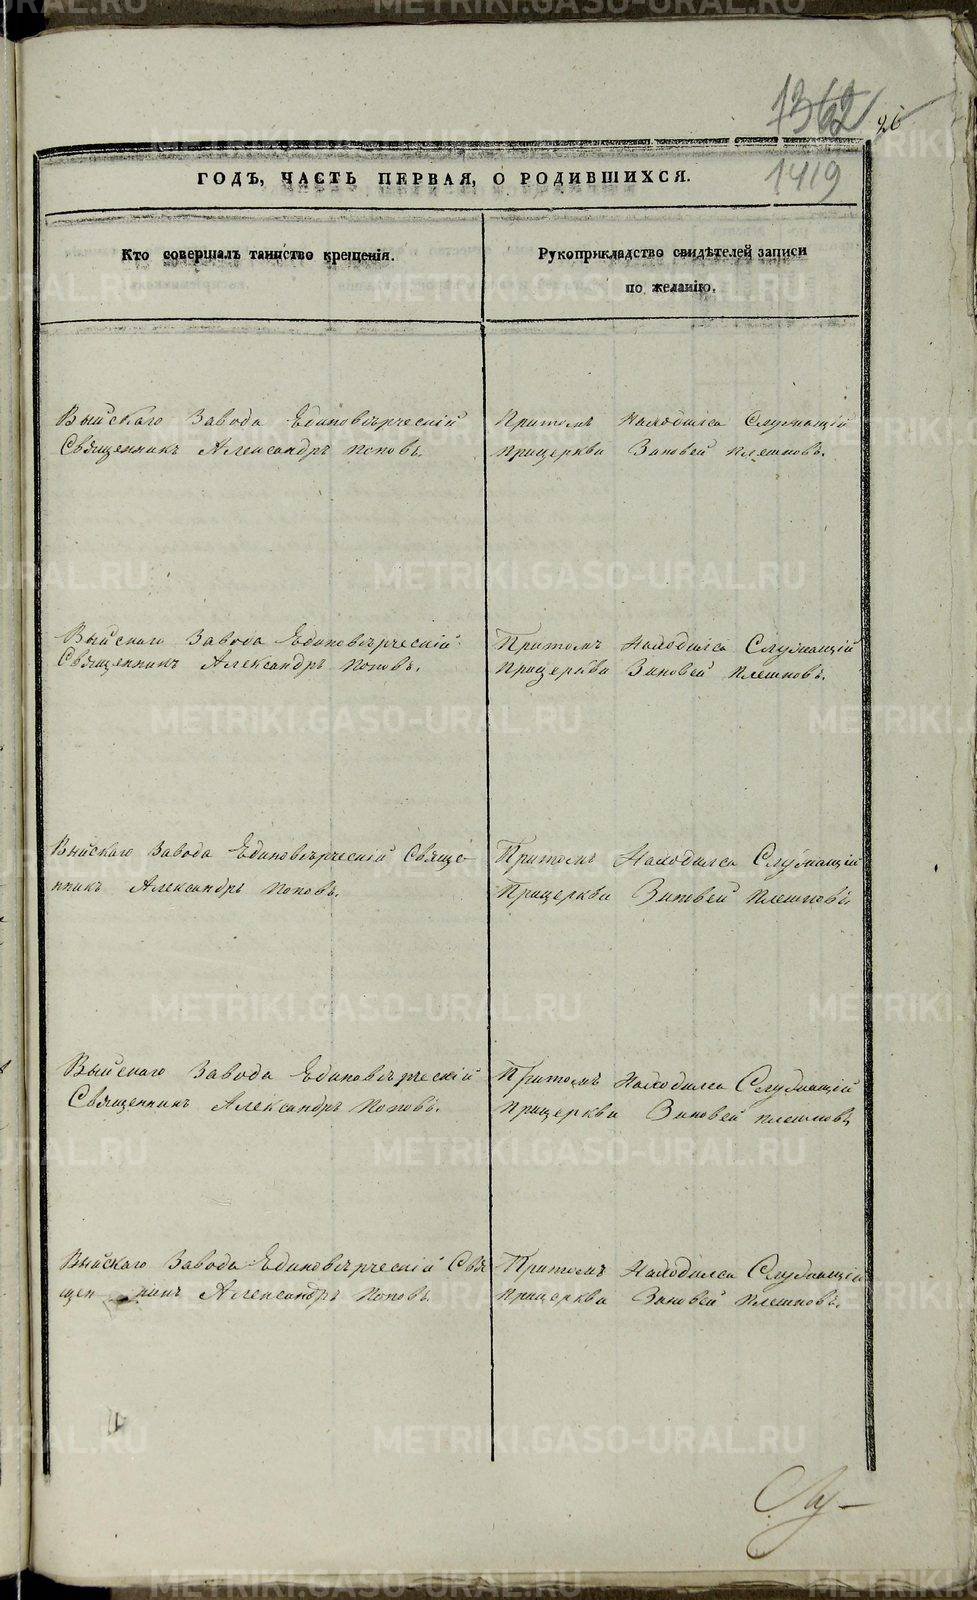 1362
26
1419
ГОДЪ, ЧАСТЬ ПЕРВАЯ, О РОДИВШИХСЯ.
Кто совершалъ таинство крещенія.
Рукоприкладство свидѣтелей записи
по желанію.
Выйскаго Завода Единовѣрческій
Священникъ Александръ Поповъ.
Притомъ Находился Служащій
Прицеркви Зиновей Плешковъ.
Выйскаго Завода Единовѣрческій
Священникъ Александръ Поповъ.
Притомъ Находился Служащій
Прицеркви Зиновей Плешковъ.
Выйскаго Завода Единовѣрческій Свяще-
нникъ Александръ Поповъ.
Притомъ Находился Служащій
Прицеркви Зиновей Плешковъ.
Выйскаго Завода Единовѣрческій
Священникъ Александръ Поповъ.
Притомъ Находился Служащій
Прицеркви Зиновей Плешковъ
Выйскаго Завода Единовѣрческій Свя
щен никъ Александръ Поповъ.
Притомъ Находился Служащій
Прицеркви Зиновей Плешковъ.
METRIKI.GASO-URAL.RU